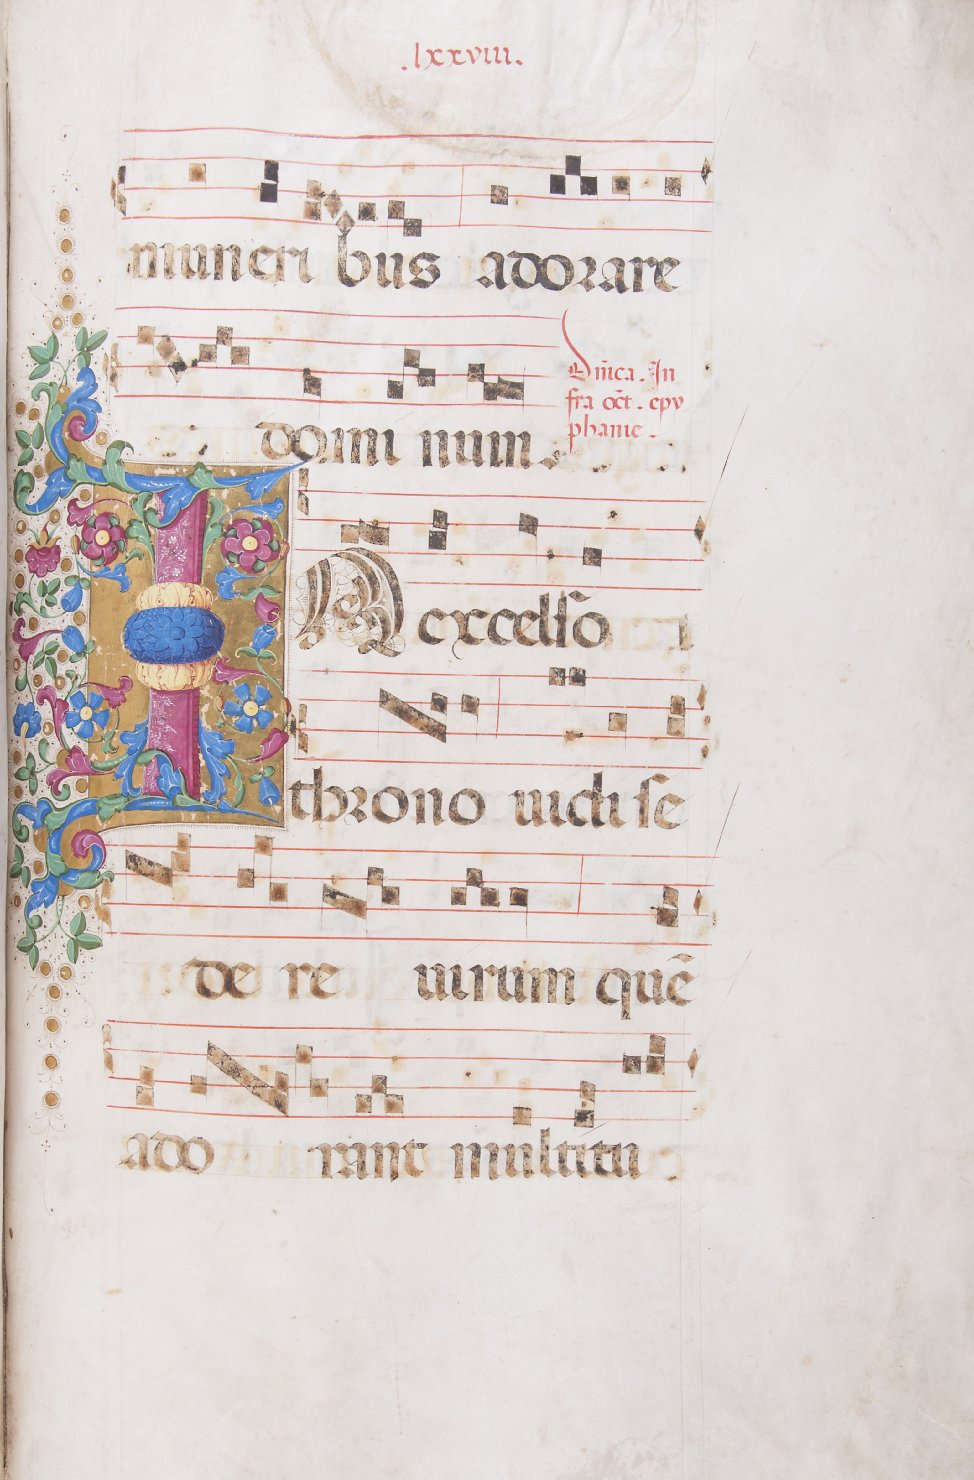 .lxxviii.
muneri bus adorare
domi num.
Dn̄ica. In
fra oct̄. epy
phanie.
IN excelso
throno uidi se
de re uirum quē
ado rant multitu